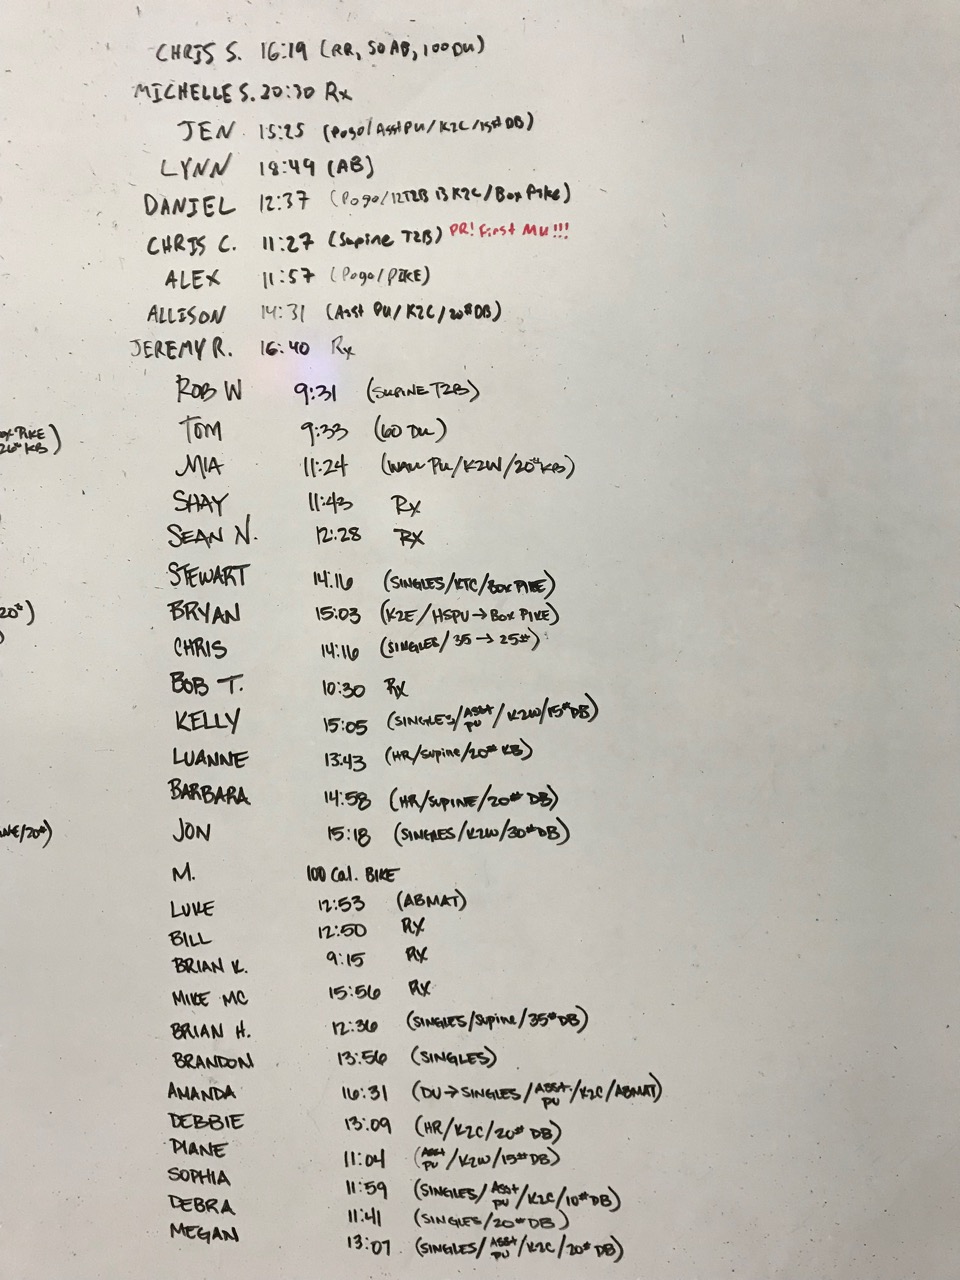 CHRIS S. 16:19 (RR, 50 AB, 100 DU)
MICHELLE S. 20:30 Rx
JEN 15:25 (Pogo/Asst PU/K2C/15# DB)
LYNN 18:49 (AB)
DANIEL 12:37 (Pogo/12 T2B 13 K2C/Box Pike)
CHRIS C. 11:27 (Supine T2B) PR! First MU!!!
ALEX 11:57 (Pogo/PIKE)
ALLISON 14:31 (Asst PU/K2C/20# DB)
JEREMY R. 16:40 Rx
ROB W 9:31 (SUPINE T2B)
TOM 9:33 (60 DU)
OX PIKE)
26# KB)
MIA 11:24 (WALL PU/K2W/20# KB)
SHAY 11:43 Rx
SEAN N. 12:28 RX
STEWART 14:16 (SINGLES/KTC/BOX PIKE)
20#)
BRYAN 15:03 (K2E/HSPU→BOX PIKE)
)
CHRIS 14:16 (SINGLES/35→25#)
BOB T. 10:30 RX
KELLY 15:05 (SINGLES/ASST PU/K2W/15# DB)
LUANNE 13:43 (HR/Supine/20# KB)
BARBARA 14:58 (HR/SUPINE/20# DB)
NE/20#)
JON 15:18 (SINGLES/K2W/30# DB)
M. 100 Cal. BIKE
LUKE 12:53 (ABMAT)
BILL 12:50 RX
BRIAN K. 9:15 RX
MIKE MC 15:56 RX
BRIAN H. 12:36 (SINGLES/Supine/35# DB)
BRANDON 13:56 (SINGLES)
AMANDA 16:31 (DU→SINGLES/ASST. PU/K2C/ABMAT)
DEBBIE 13:09 (HR/K2C/20# DB)
DIANE 11:04 (ASST PU/K2W/15# DB)
SOPHIA 11:59 (SINGLES/ASST PU/K2C/10# DB)
DEBRA 11:41 (SINGLES/20# DB)
MEGAN 13:07 (SINGLES/ASST PU/K2C/20# DB)